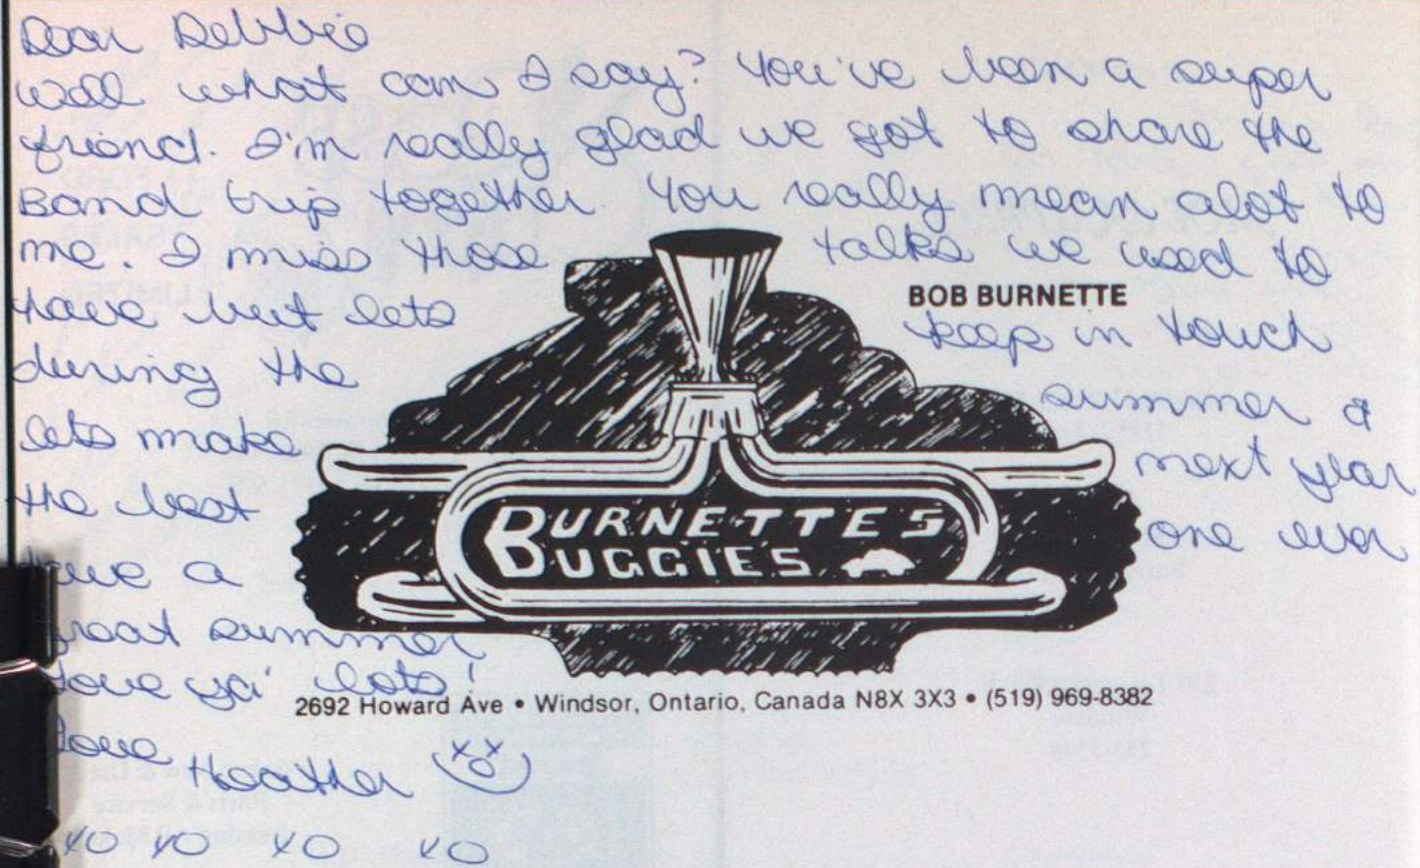 Dear Debbie
Well what can I say? You've been a super
friend. I'm really glad we got to share the
Band trip together. You really mean alot to
me. I miss those talks we used to
have but lets keep in touch
during the summer &
lets make next year
the best one ever
Have a
great summer
Love ya' lots!
Love Heather
xo xo xo xo
BOB BURNETTE
BURNETTES
BUGGIES
2692 Howard Ave • Windsor, Ontario, Canada N8X 3X3 • (519) 969-8382